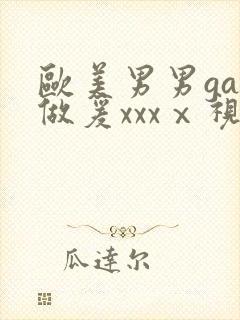 歐美男男ga
做爰xxxⅹ視
瓜達尔